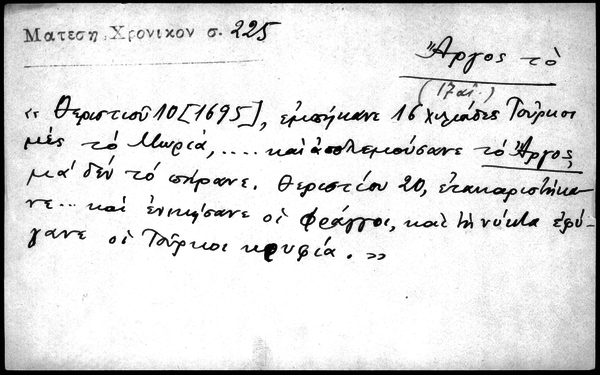 Ματεση Χρονικον σ. 225
Ἄργος τὸ
(17 αἰ.)
« Θεριστιοῦ 10 [1695], ἐμπήκανε 16 χιλιάδες Τοῦρκοι
μὲς τὸ Μωριά, .... καὶ ἐπολεμούσανε τὸ Ἄργος,
μὰ δέν τό πήρανε. Θεριστίου 20,
νε... καὶ ἐνικήσανε οἱ Φράγγοι, καὶ τὴ νύκτα ἐφύ-
γανε οἱ Τοῦρκοι κρυφία. »